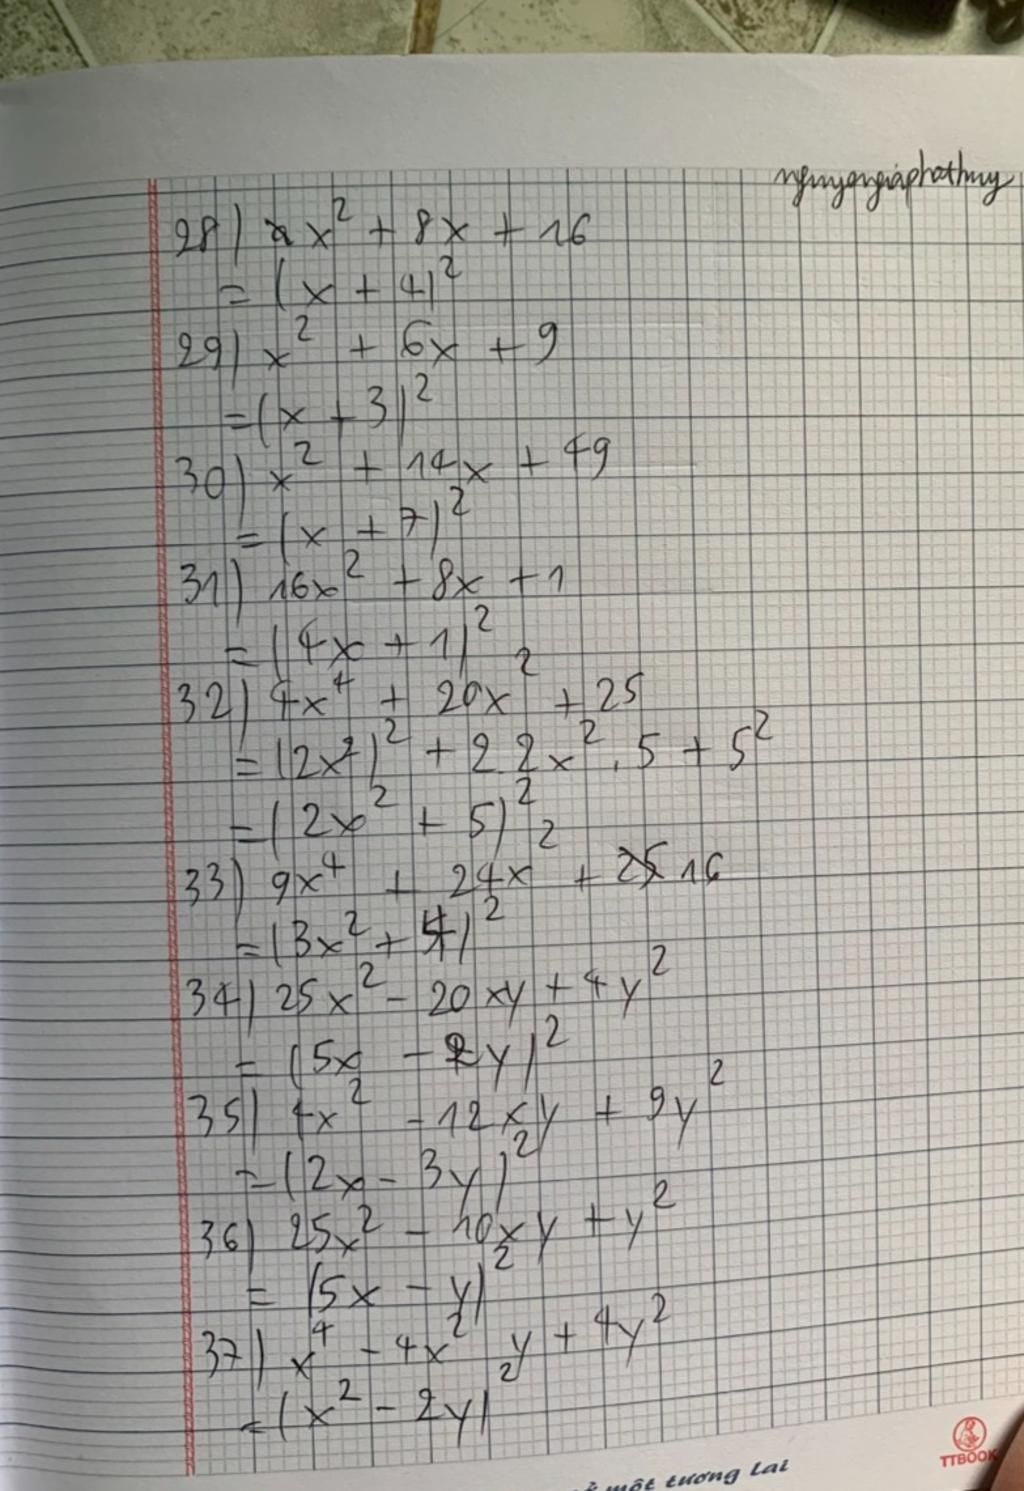 nguyengiaphathuy
28) x² + 8x + 16
= (x + 4)²
29) x² + 6x + 9
= (x + 3)²
30) x² + 14x + 49
= (x + 7)²
31) 16x² + 8x + 1
= (4x + 1)²
32) 4x⁴ + 20x² + 25
= (2x²)² + 2.2x².5 + 5²
= (2x² + 5)²
33) 9x⁴ + 24x² + 16
= (3x² + 4)²
34) 25x² - 20xy + 4y²
= (5x - 2y)²
35) 4x² - 12xy + 9y²
= (2x - 3y)²
36) 25x² - 10xy + y²
= (5x - y)²
37) x⁴ - 4x²y + 4y²
= (x² - 2y)²
một tương lai
TTBOOK